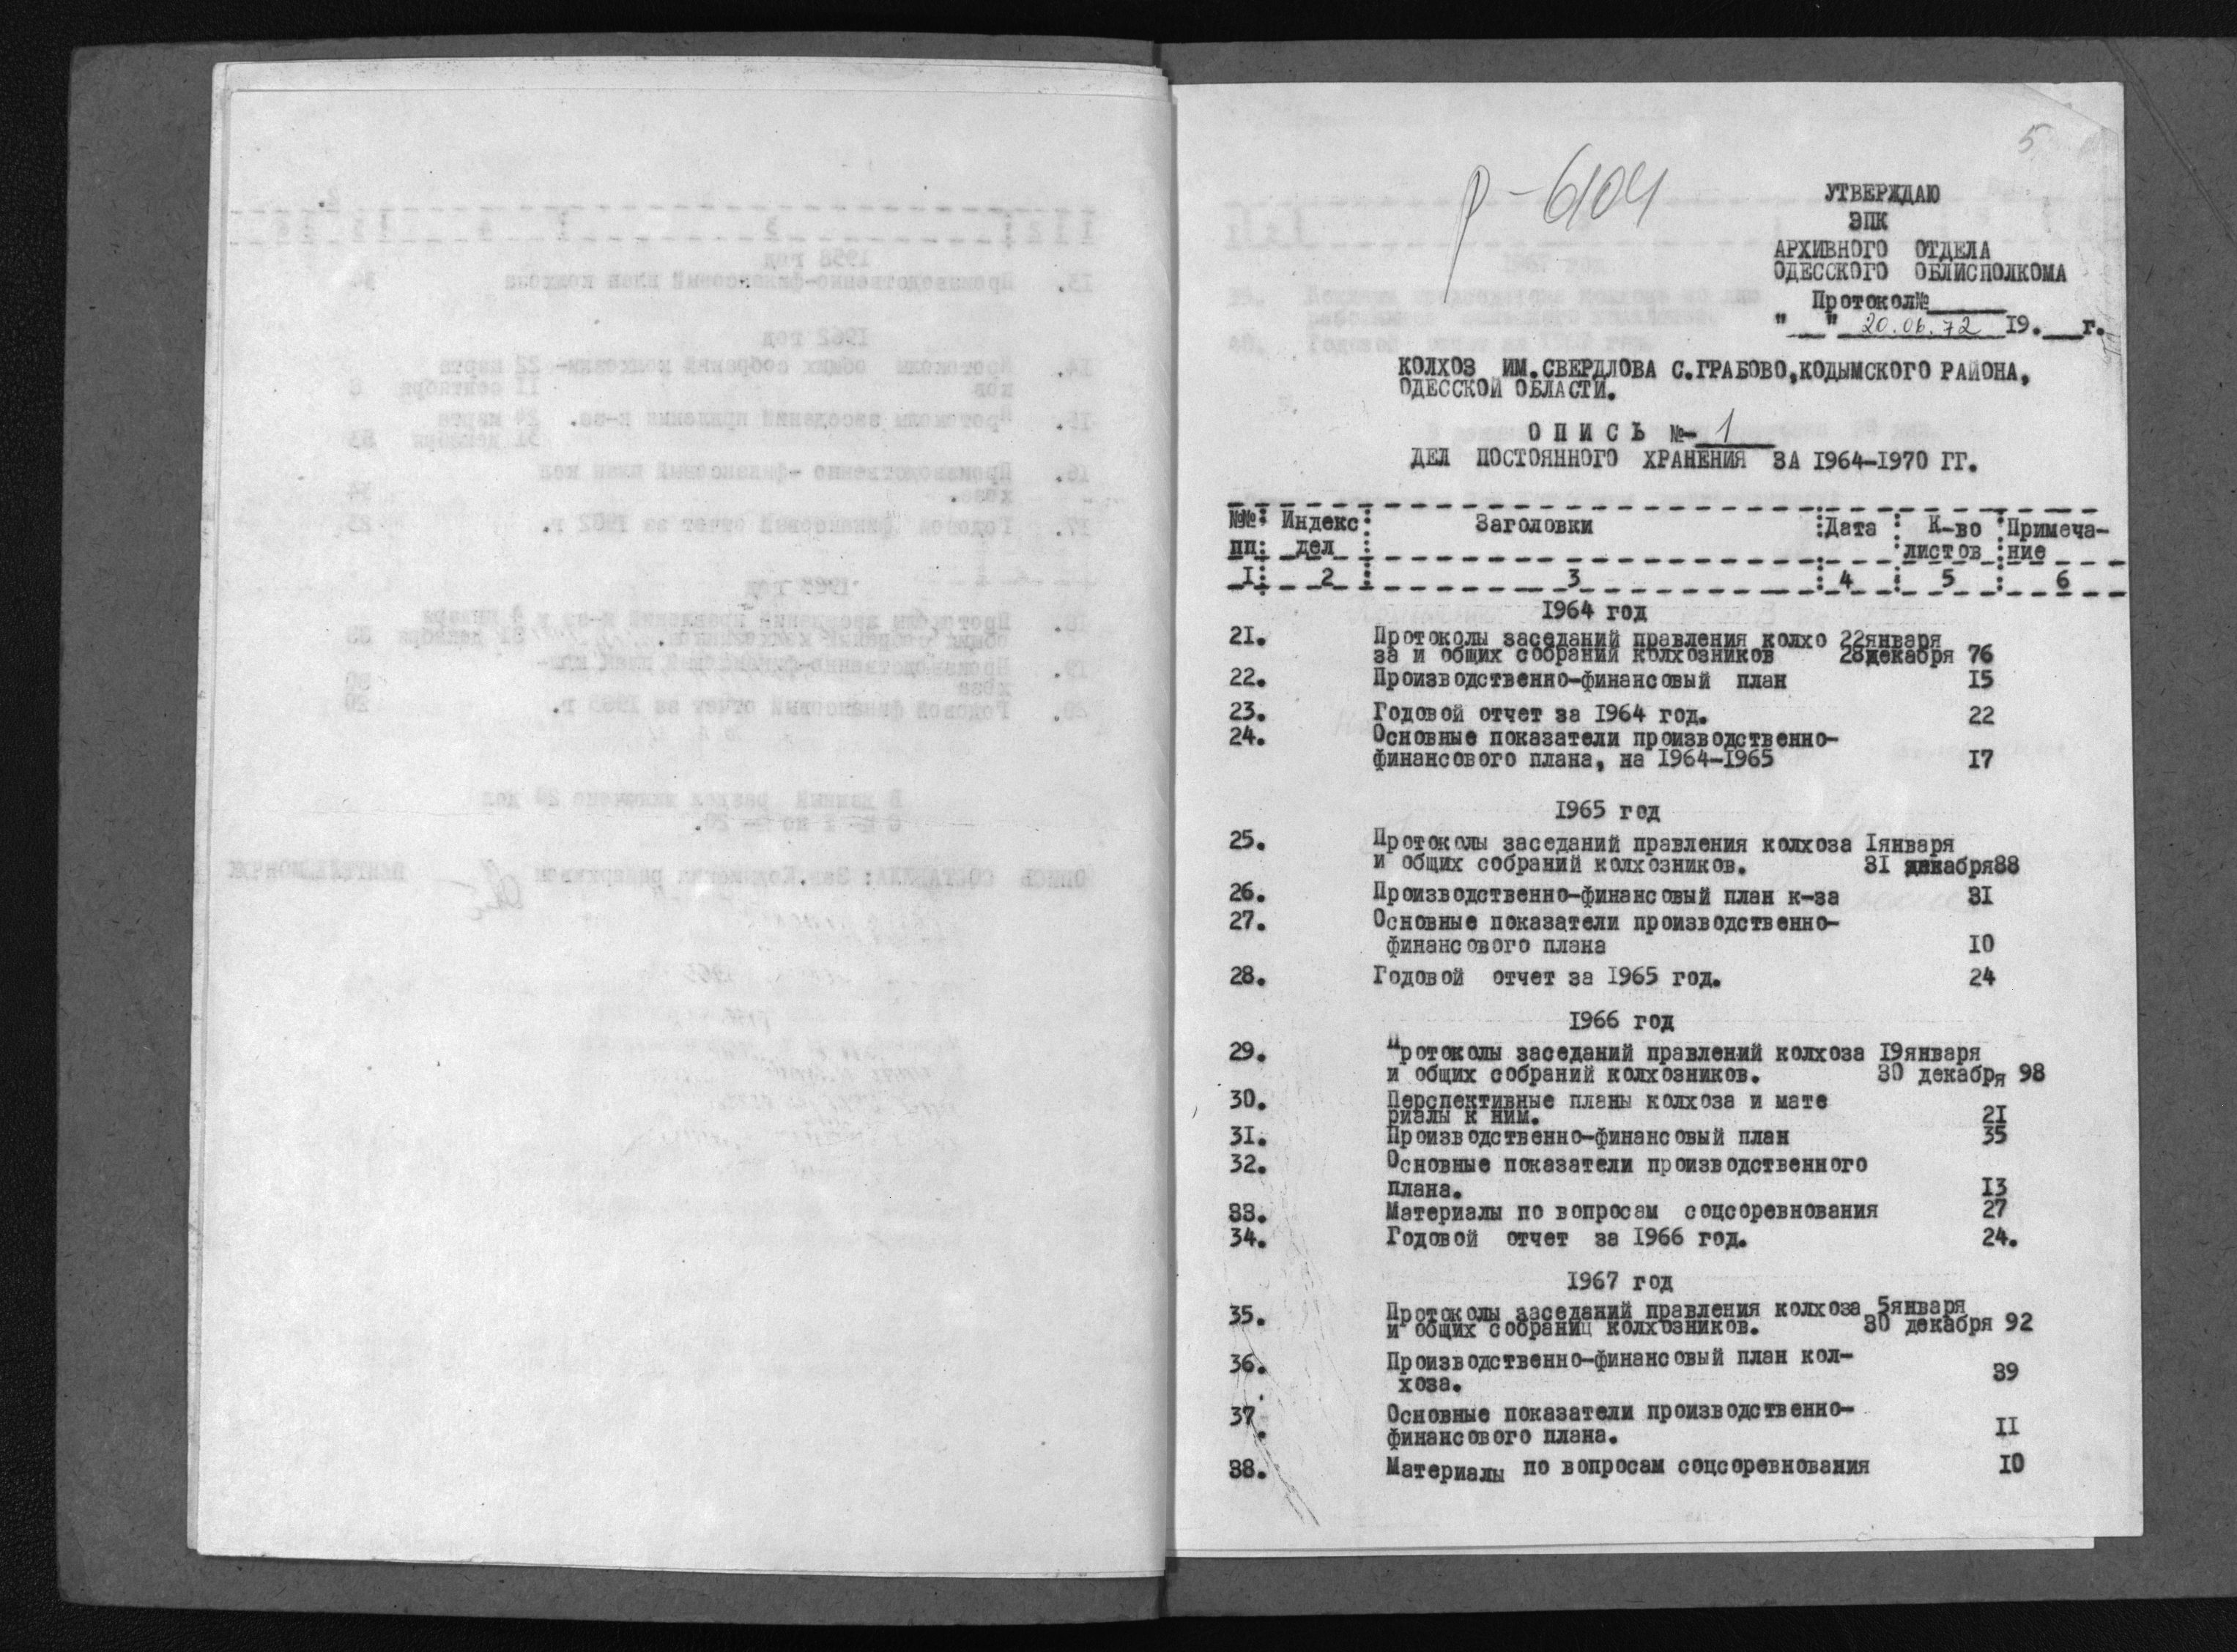 5
Р-6104
УТВЕРЖДАЮ
ЭПК
АРХИВНОГО ОТДЕЛА
ОДЕССКОГО ОБЛИСПОЛКОМА
Протокол№______
"__" 20.06.72 19.___г.
КОЛХОЗ ИМ.СВЕРДЛОВА С.ГРАБОВО,КОДЫМСКОГО РАЙОНА,
ОДЕССКОЙ ОБЛАСТИ.
О П И С Ь №- 1
ДЕЛ ПОСТОЯННОГО ХРАНЕНИЯ ЗА 1964-1970 ГГ.
№№: Индекс: Заголовки :Дата : К-во :Примеча-
пп: дел : : : листов :ние
I: 2 : 3 : 4 : 5 : 6
1964 год
21. Протоколы заседаний правления колхо 22января
за и общих собраний колхозников 28декабря 76
22. Производственно-финансовый план 15
23. Годовой отчет за 1964 год. 22
24. Основные показатели производственно-
финансового плана, на 1964-1965 17
1965 год
25. Протоколы заседаний правления колхоза 1января
и общих собраний колхозников. 31 декабря88
26. Производственно-финансовый план к-за 31
27. Основные показатели производственно-
финансового плана 10
28. Годовой отчет за 1965 год. 24
1966 год
29. Протоколы заседаний правлений колхоза 19января
и общих собраний колхозников. 30 декабря 98
30. Перспективные планы колхоза и мате
риалы к ним. 21
31. Производственно-финансовый план 35
32. Основные показатели производственного
плана. 13
33. Материалы по вопросам соцсоревнования 27
34. Годовой отчет за 1966 год. 24.
1967 год
35. Протоколы заседаний правления колхоза 5января
и общих собраниц колхозников. 30 декабря 92
36. Производственно-финансовый план кол-
хоза. 39
37. Основные показатели производственно-
финансового плана. 11
38. Материалы по вопросам соцсоревнования 10